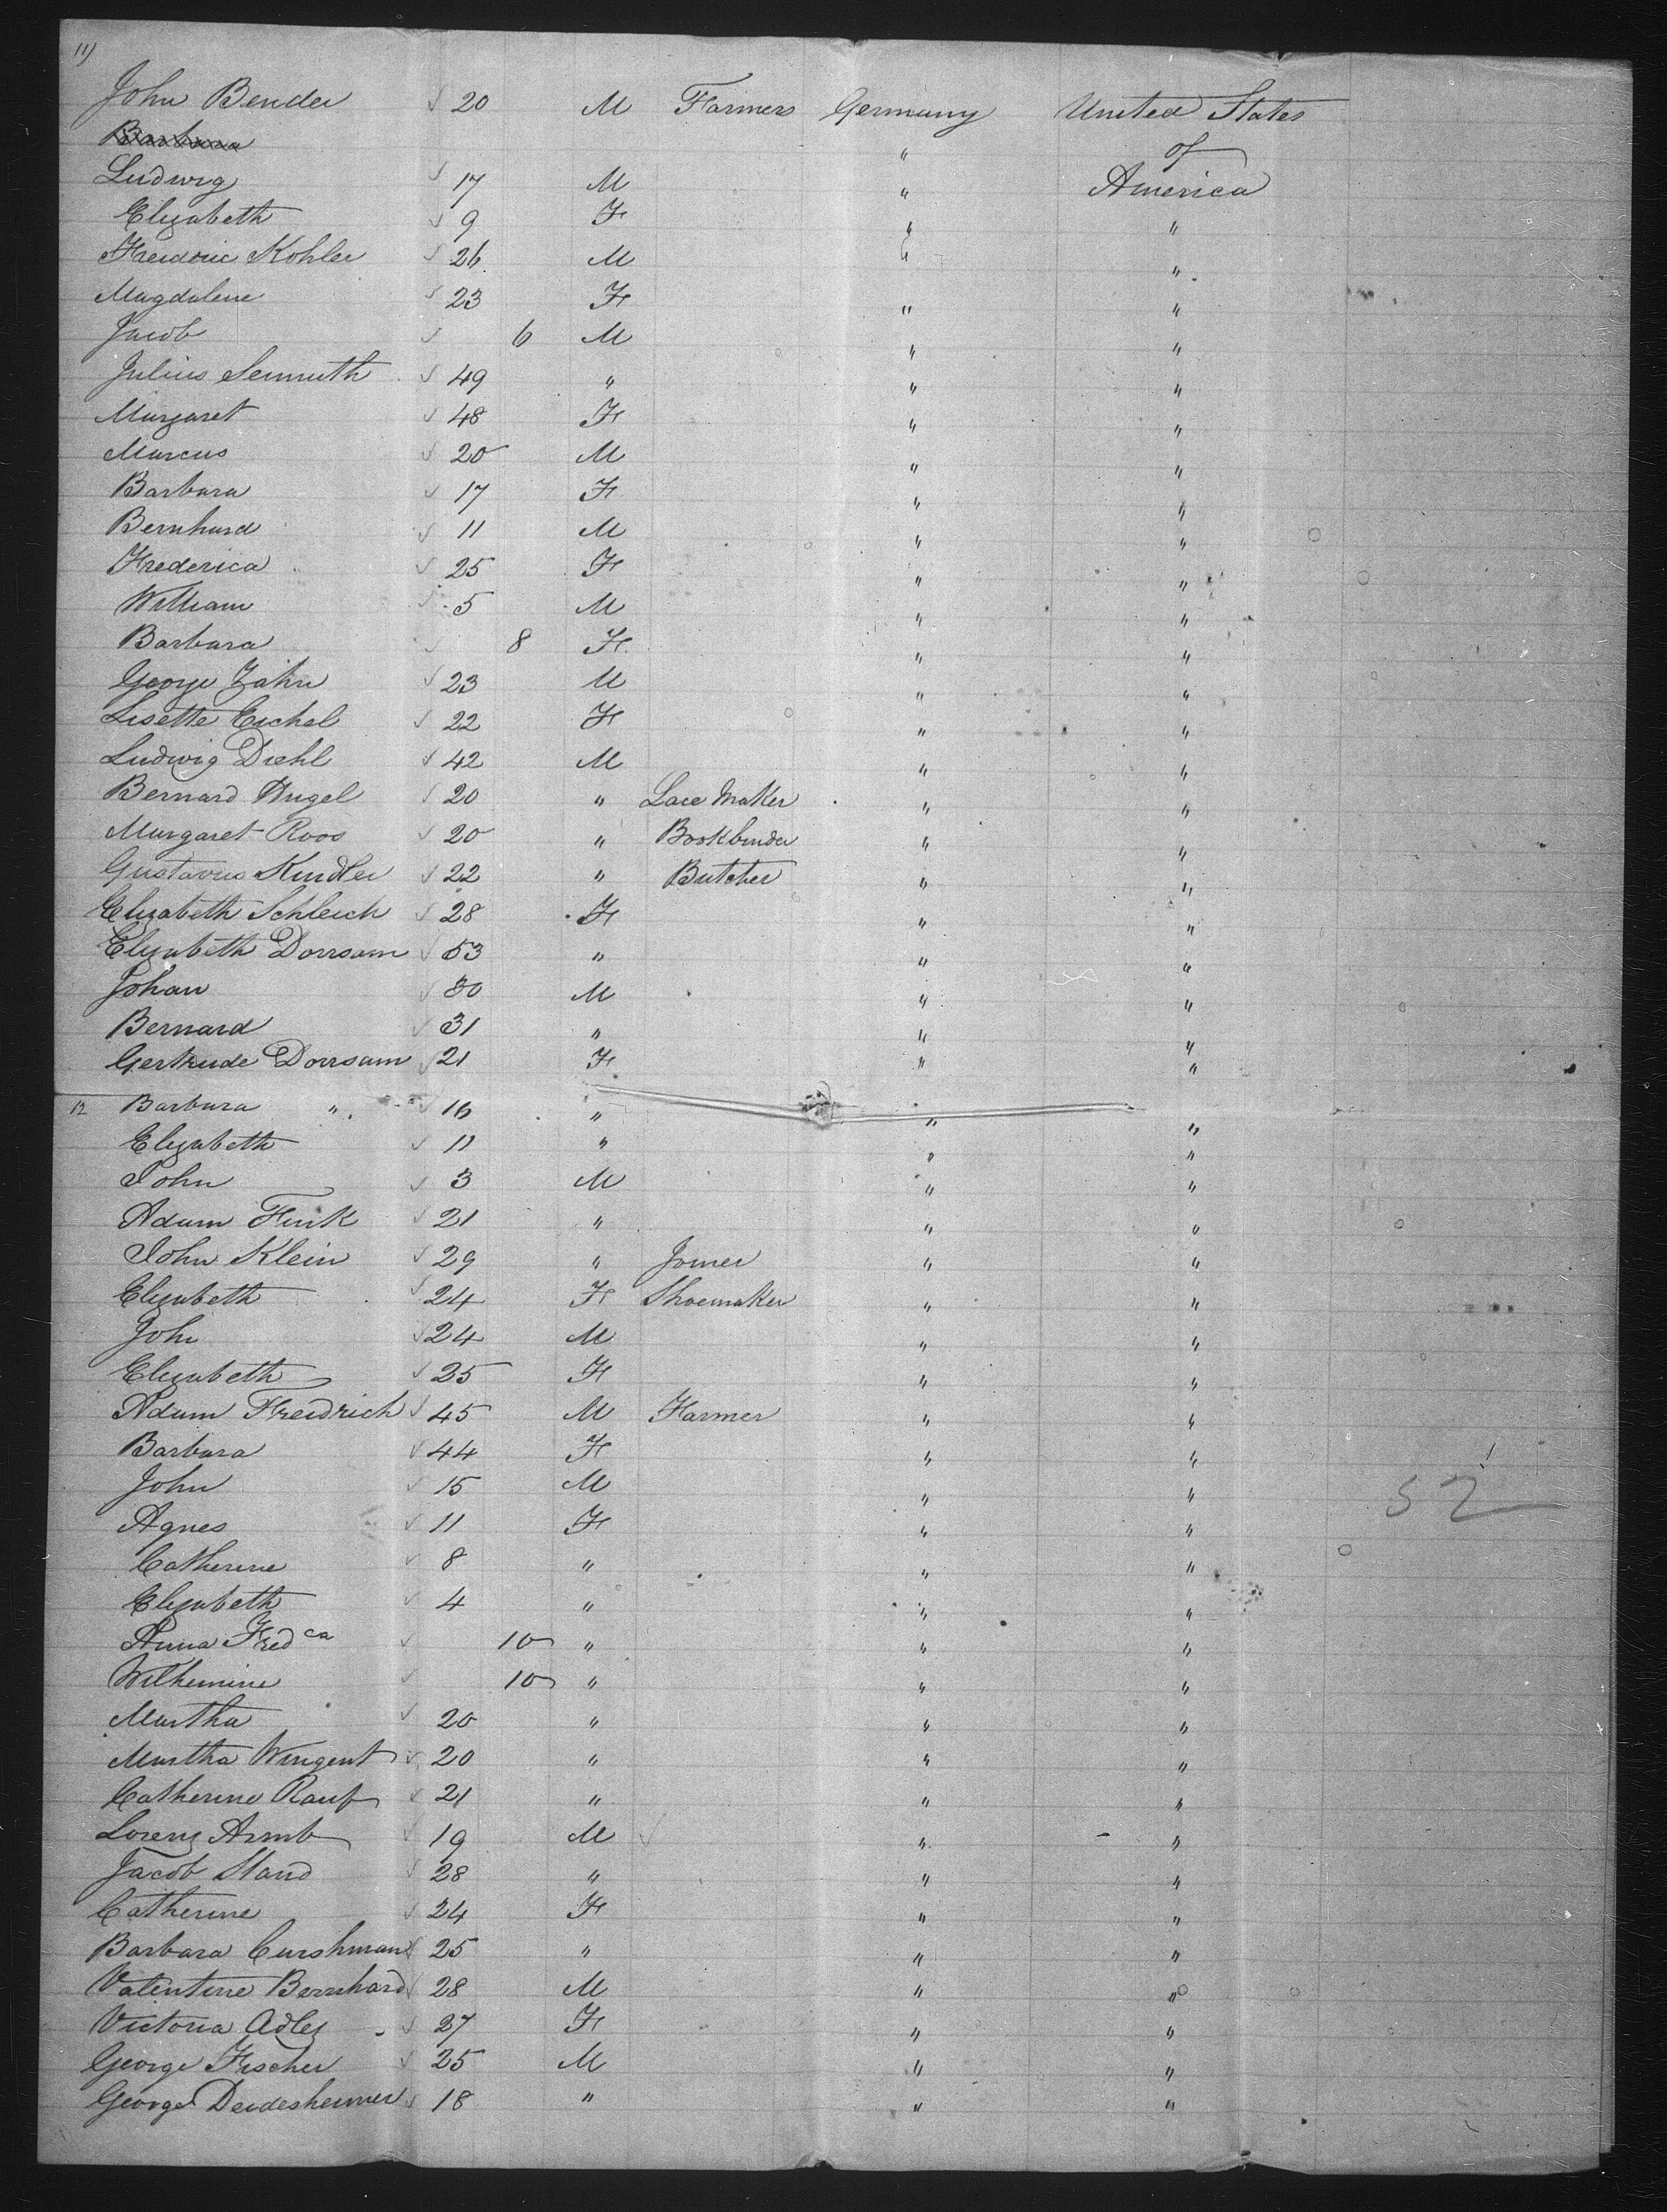 11)
John Bender 20 M Farmers Germany United States
Barbara " of
Ludwig 17 M " America
Elizabeth 9 F " "
Frederic Kohler 26 M " "
Magdalene 23 F " "
Jacob 6 M " "
Julius Sermuth 49 " " "
Margaret 48 F " "
Marcus 20 M " "
Barbara 17 F " "
Bernhard 11 M " "
Frederica 25 F " "
William 5 M " "
Barbara 8 F " "
George Zahn 23 M " "
Lisette Eichel 22 F " "
Ludwig Diehl 42 M " "
Bernard Hugel 20 " Lace Maker " "
Margaret Roos 20 " Bookbinder " "
Gustavus Kindler 22 " Butcher " "
Elizabeth Schleich 28 F " "
Elizabeth Dorrsam 53 " " "
Johan 30 M " "
Bernard 31 " " "
Gertrude Dorrsam 21 F " "
12 Barbara " 16 " " "
Elizabeth 11 " " "
John 3 M " "
Adam Fink 21 " " "
John Klein 29 " Joiner " "
Elizabeth 24 F Shoemaker " "
John 24 M " "
Elizabeth 25 F " "
Adam Freidrich 45 M Farmer " "
Barbara 44 F " "
John 15 M " "
Agnes 11 F " "
Catherine 8 " " "
Elizabeth 4 " " "
Anna Fredca 10 " " "
Wilhemine 10 " " "
Martha 20 " " "
Martha Wingent 20 " " "
Catherine Rauf 21 " " "
Lorenz 19 M " "
Jacob Stand 28 " " "
Catherine 24 F " "
Barbara Curshman 25 " " "
Valentine Bernhard 28 M " "
Victoria Adler 27 F " "
George Fischer 25 M " "
George Deidesheimer 18 " " "
52